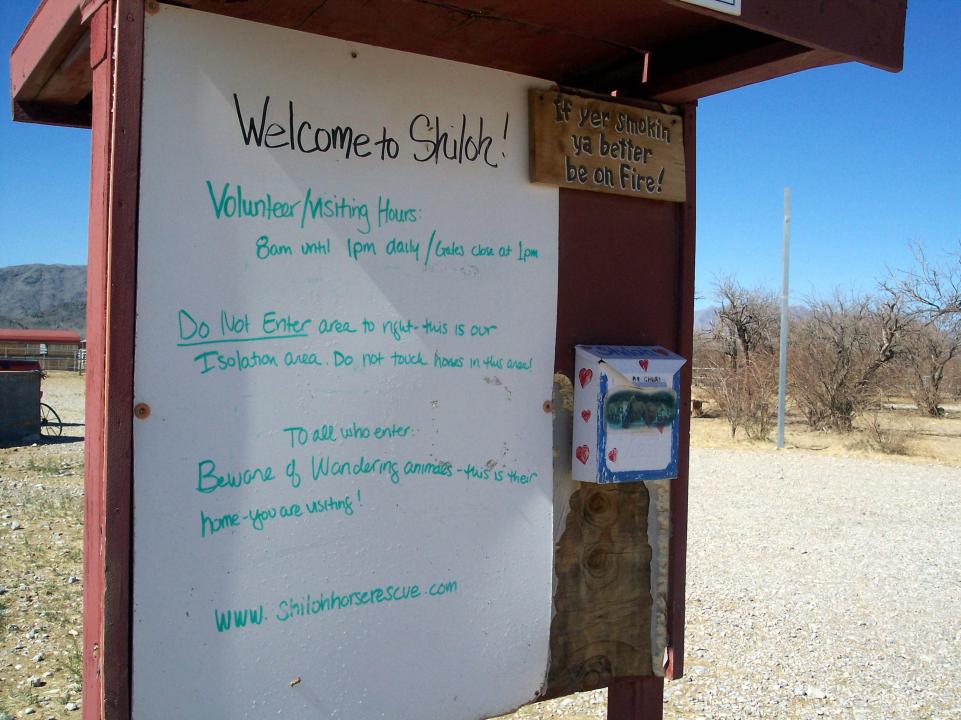 Welcome to Shiloh!
If yer smokin'
ya better
be on Fire!
Volunteer/Visiting Hours:
8am until 1pm daily/Gates close at 1pm
Do Not Enter area to right-this is our
Isolation area. Do not touch horses in this area!
To all who enter:
Beware of Wandering animals-this is their
home-you are visiting!
www.shilohhorserescue.com
Shiloh